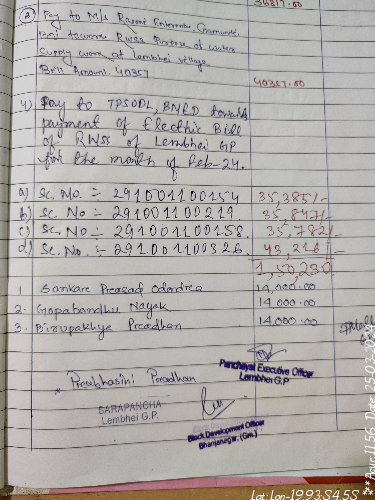 36817.00
③ Pay to M/s Rasmi Enterprise, Chamunda,
Bnj towards RWSS Purpose of water
Supply work at Lembhei village
Bill Amount 40357
40357.00
4) Pay to TPSODL, BNRD towards
payment of Electric Bill
of RWSS of Lembhei GP
for the month of Feb-24.
a) Sc. No. :- 291001100154 35,385/-
b) Sc. No :- 291001100219. 35,847/-
c) Sc. No :- 291001100158. 35,782/-
d) Sc. No. :- 291001100326. 43,216/-
1,50,230
1 Sankar Prasad 14,000.00
2. Gopabandhu Nayak 14,000.00
3. Birupakhya Pradhan 14,000.00
Panchayat Executive Officer
Lembhei G.P
Prabhasini Pradhan
SARAPANCHA
Lembhei G.P.
Block Development Officer
Bhanjanagar, (Gm.)
Date 25-03-2024
Lat:Lon-19.93:84.55